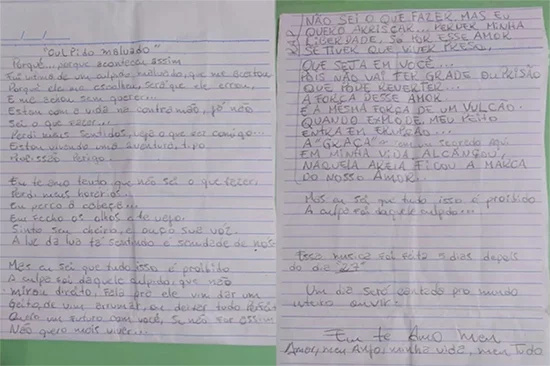 "CULPIDO MALVADO"
Porquê... porque aconteceu assim
Fui vitima de um culpido malvado, que me acertou
Porquê ele me escolheu, será que ele errou,
E me achou sem querer...
Estou com a vida na contra mão, já não
Sei o que fazer...
Perdi meus sentidos, veja o que faz comigo...
Estou vivendo uma aventura, tipo
Eu te amo tanto que não sei o que fazer,
Perdi meus horários...
Eu perco a cabeça...
Eu fecho os olhos e te vejo.
Sinto seu cheiro, e ouço sua voz.
A luz da lua tá sentindo a saudade de nós
Mas eu sei que tudo isso é proibido
A culpa foi daquele culpido, que não
mirou direito, fala pra ele vim dar um
Geito, de vim arrumar, ou deixar tudo
Quero um futuro com você, se não for assim
Não quero mais viver...
NÃO SEI O QUE FAZER, MAS EU
QUERO ARRISCAR... PERDER MINHA
LIBERDADE, SÓ POR ESSE AMOR
SE TIVER QUE VIVER PRESO,
QUE SEJA EM VOCÊ...
POIS NÃO VAI TER GRADE OU PRISÃO
QUE PODE REVERTER...
A FORÇA DESSE AMOR
E A MESMA FORÇA DE UM VULCÃO.
QUANDO EXPLODE, MEU PEITO
ENTRA EM ERUPÇÃO...
A "GRAÇA" com seu segredo aqui
EM MINHA VIDA ALCANÇOU,
NAQUELA AREIA FICOU A MARCA
DO NOSSO AMOR...
Mas eu sei que tudo, isso é proibido
A culpa foi daquele culpido...
Essa musica foi feita 5 dias depois
do dia "27"
Um dia será contado pro mundo
inteiro ouvir.
Eu te Amo meu
Amor, meu Anjo, minha vida, meu Tudo